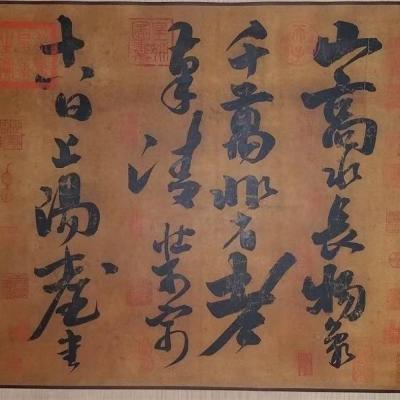 山高水長物象
千萬非有老
筆清壯可窮
十八日上陽臺書